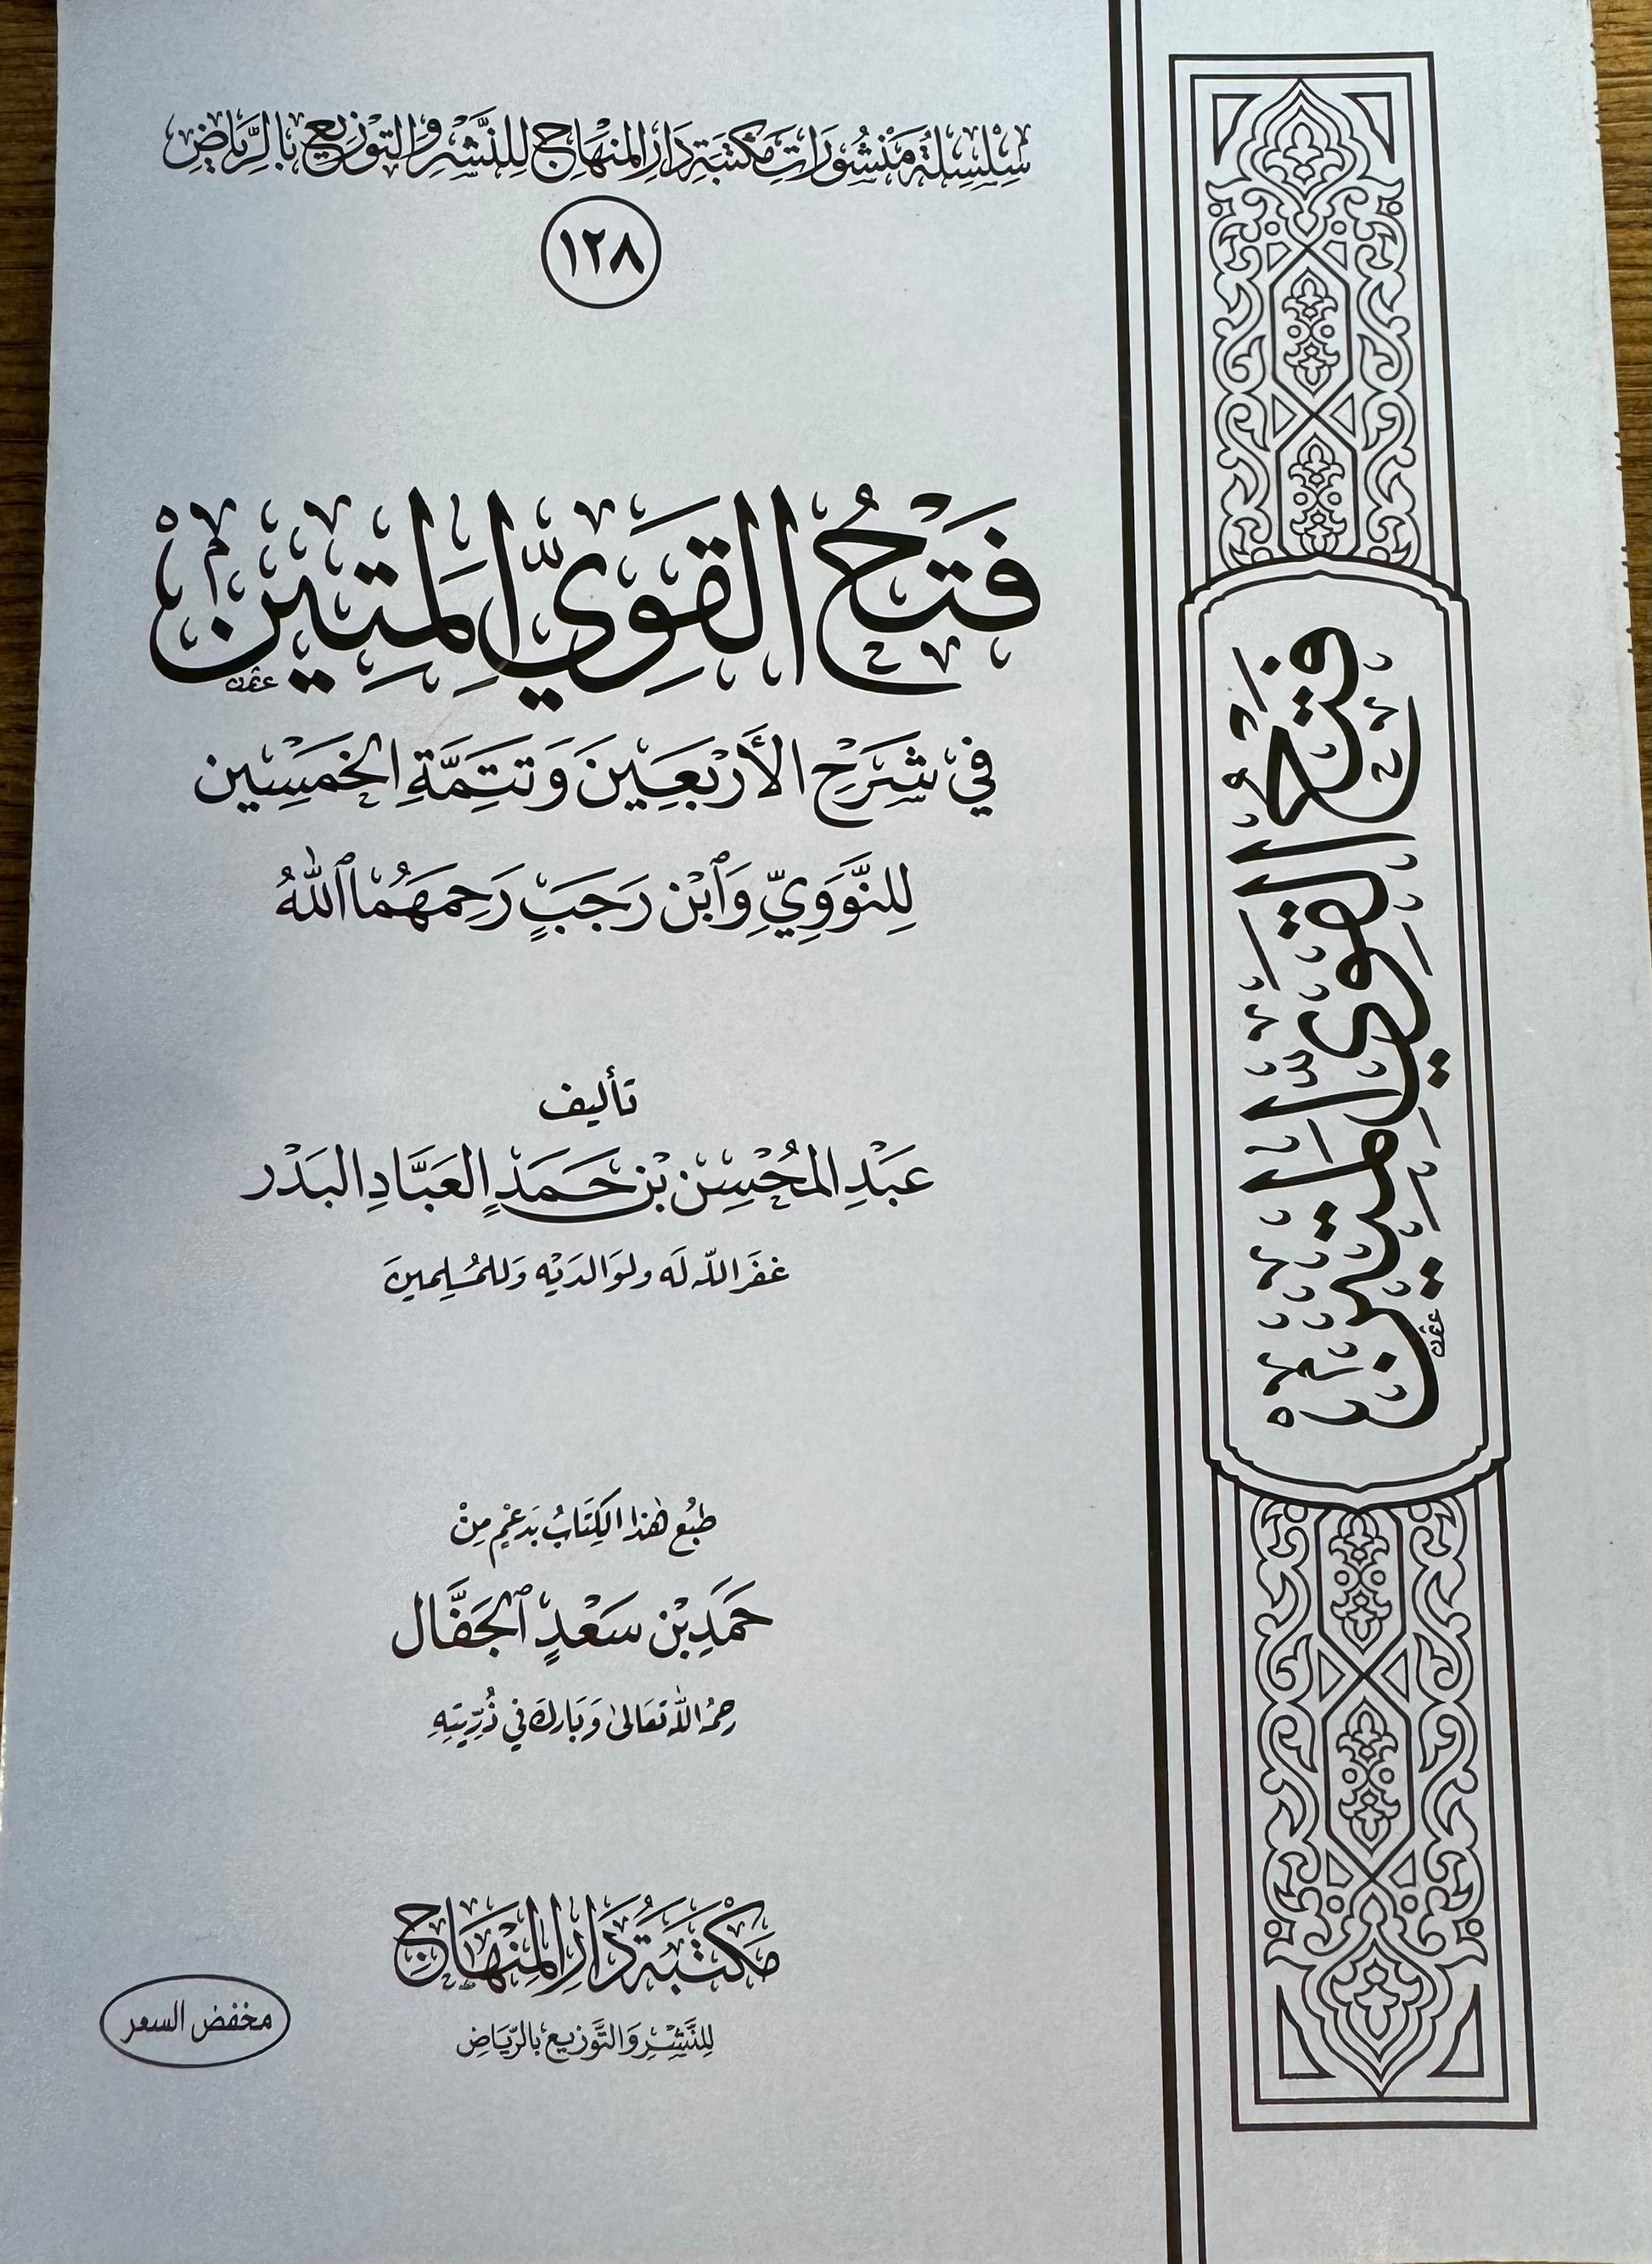 سِلْسِلَةُ مَنْشُورَاتِ مَكْتَبَةِ دَارِ المِنْهَاجِ لِلنَّشْرِ وَالتَّوْزِيعِ بِالرِّيَاضِ
١٢٨
فَتْحُ القَوِيِّ المَتِينِ
فِي شَرْحِ الأَرْبَعِينَ وَتَتِمَّةِ الخَمْسِين
لِلنَّوَوِيِّ وَٱبْنِ رَجَبٍ رَحِمَهُمَا ٱللَّهُ
تأليف
عَبْدِ المُحْسِنِ بْنِ حَمَدٍ العَبَّادِ البَدْر
غفَرَ اللّه لَه ولوَالدَيْه وَللمُسْلِمينَ
طُبِعَ هٰذا الكِتَابُ بدَعْمٍ مِنْ
حَمَدِ بْنِ سَعْدٍ ٱلجَفَّال
رحمُه اللّٰه تعَالىٰ وَبَاركَ في ذُرِّيتِهِ
مَكْتَبَةُ دَارِ المِنْهَاجِ
لِلنَّشْرِ وَالتَّوْزِيعِ بِالرِّيَاضِ
مخفض السعر
فَتْحُ القَوِيِّ المَتِينِ